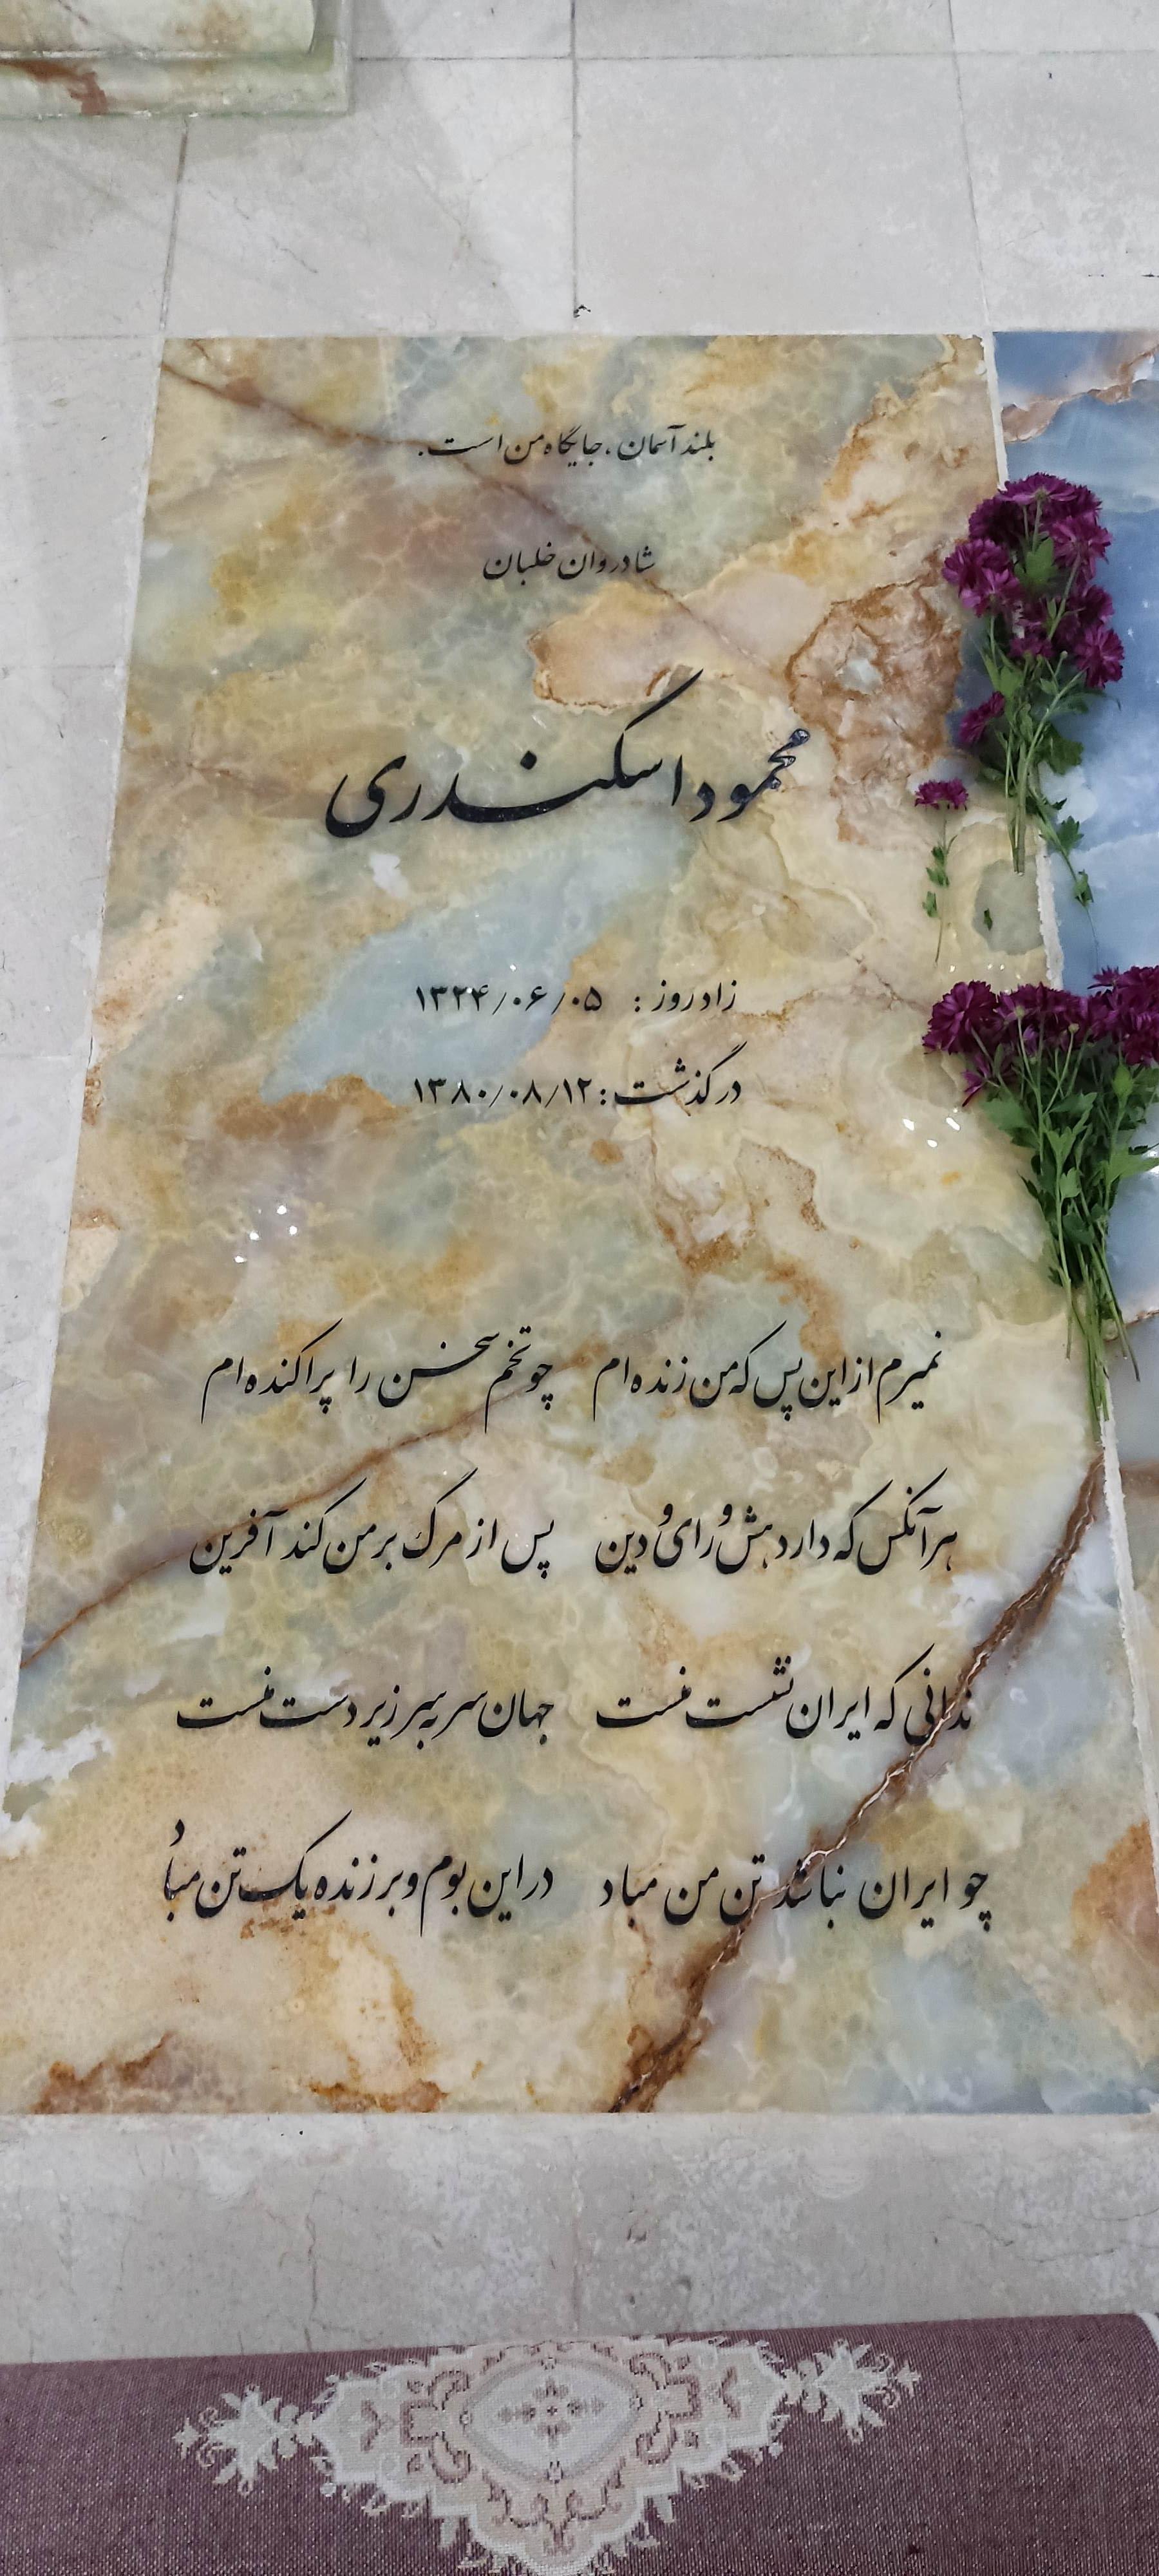 بلند آسمان، جایگاه من است.
شادروان خلبان
محمود اسکندری
زادروز : ۱۳۲۴/۰۶/۰۵
درگذشت : ۱۳۸۰/۰۸/۱۲
نمیرم از این پس که من زنده ام چو تخم سخن را پراکنده ام
هر آنکس که دارد هُش و رای و دین پس از مرگ بر من کند آفرین
ندانی که ایران نشست منست جهان سر به سر زیر دست منست
چو ایران نباشد تن من مباد در این بوم و بر زنده یک تن مباد